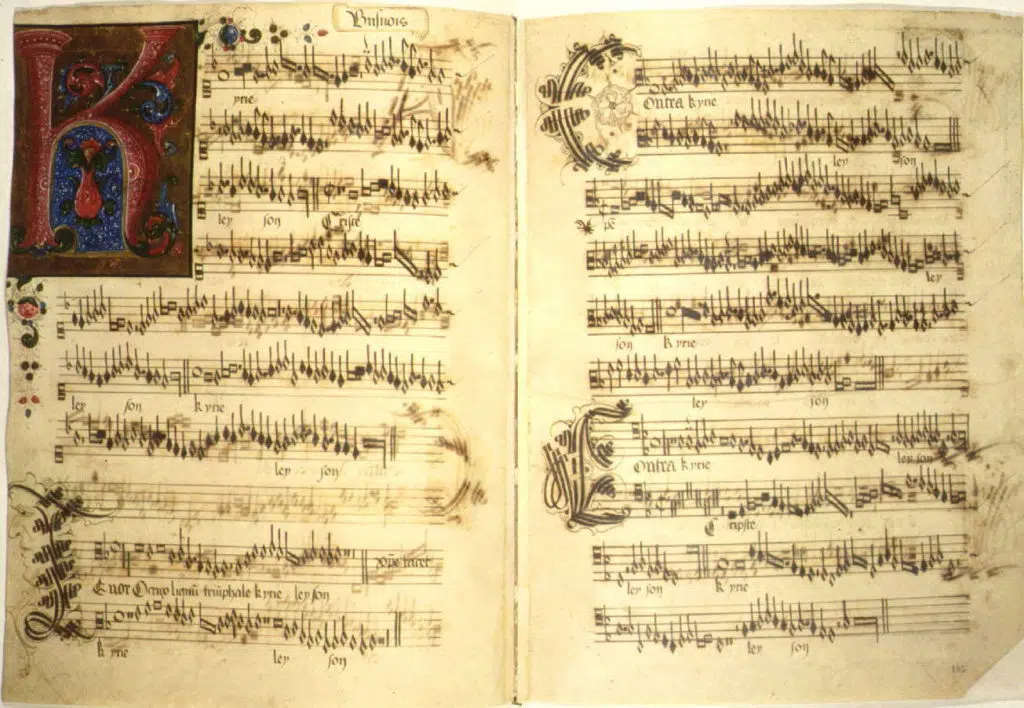 Busnois
yrie
ley son Criste
ley son kyrie
ley son
Enor O crux lignum triumphale kyrie ley son
xpe tacet
kyrie ley son
Contra kyrie
ley son
xpe
ley
son kyrie
ley son
Contra kyrie ley son
Cripste
ley son kyrie
ley son